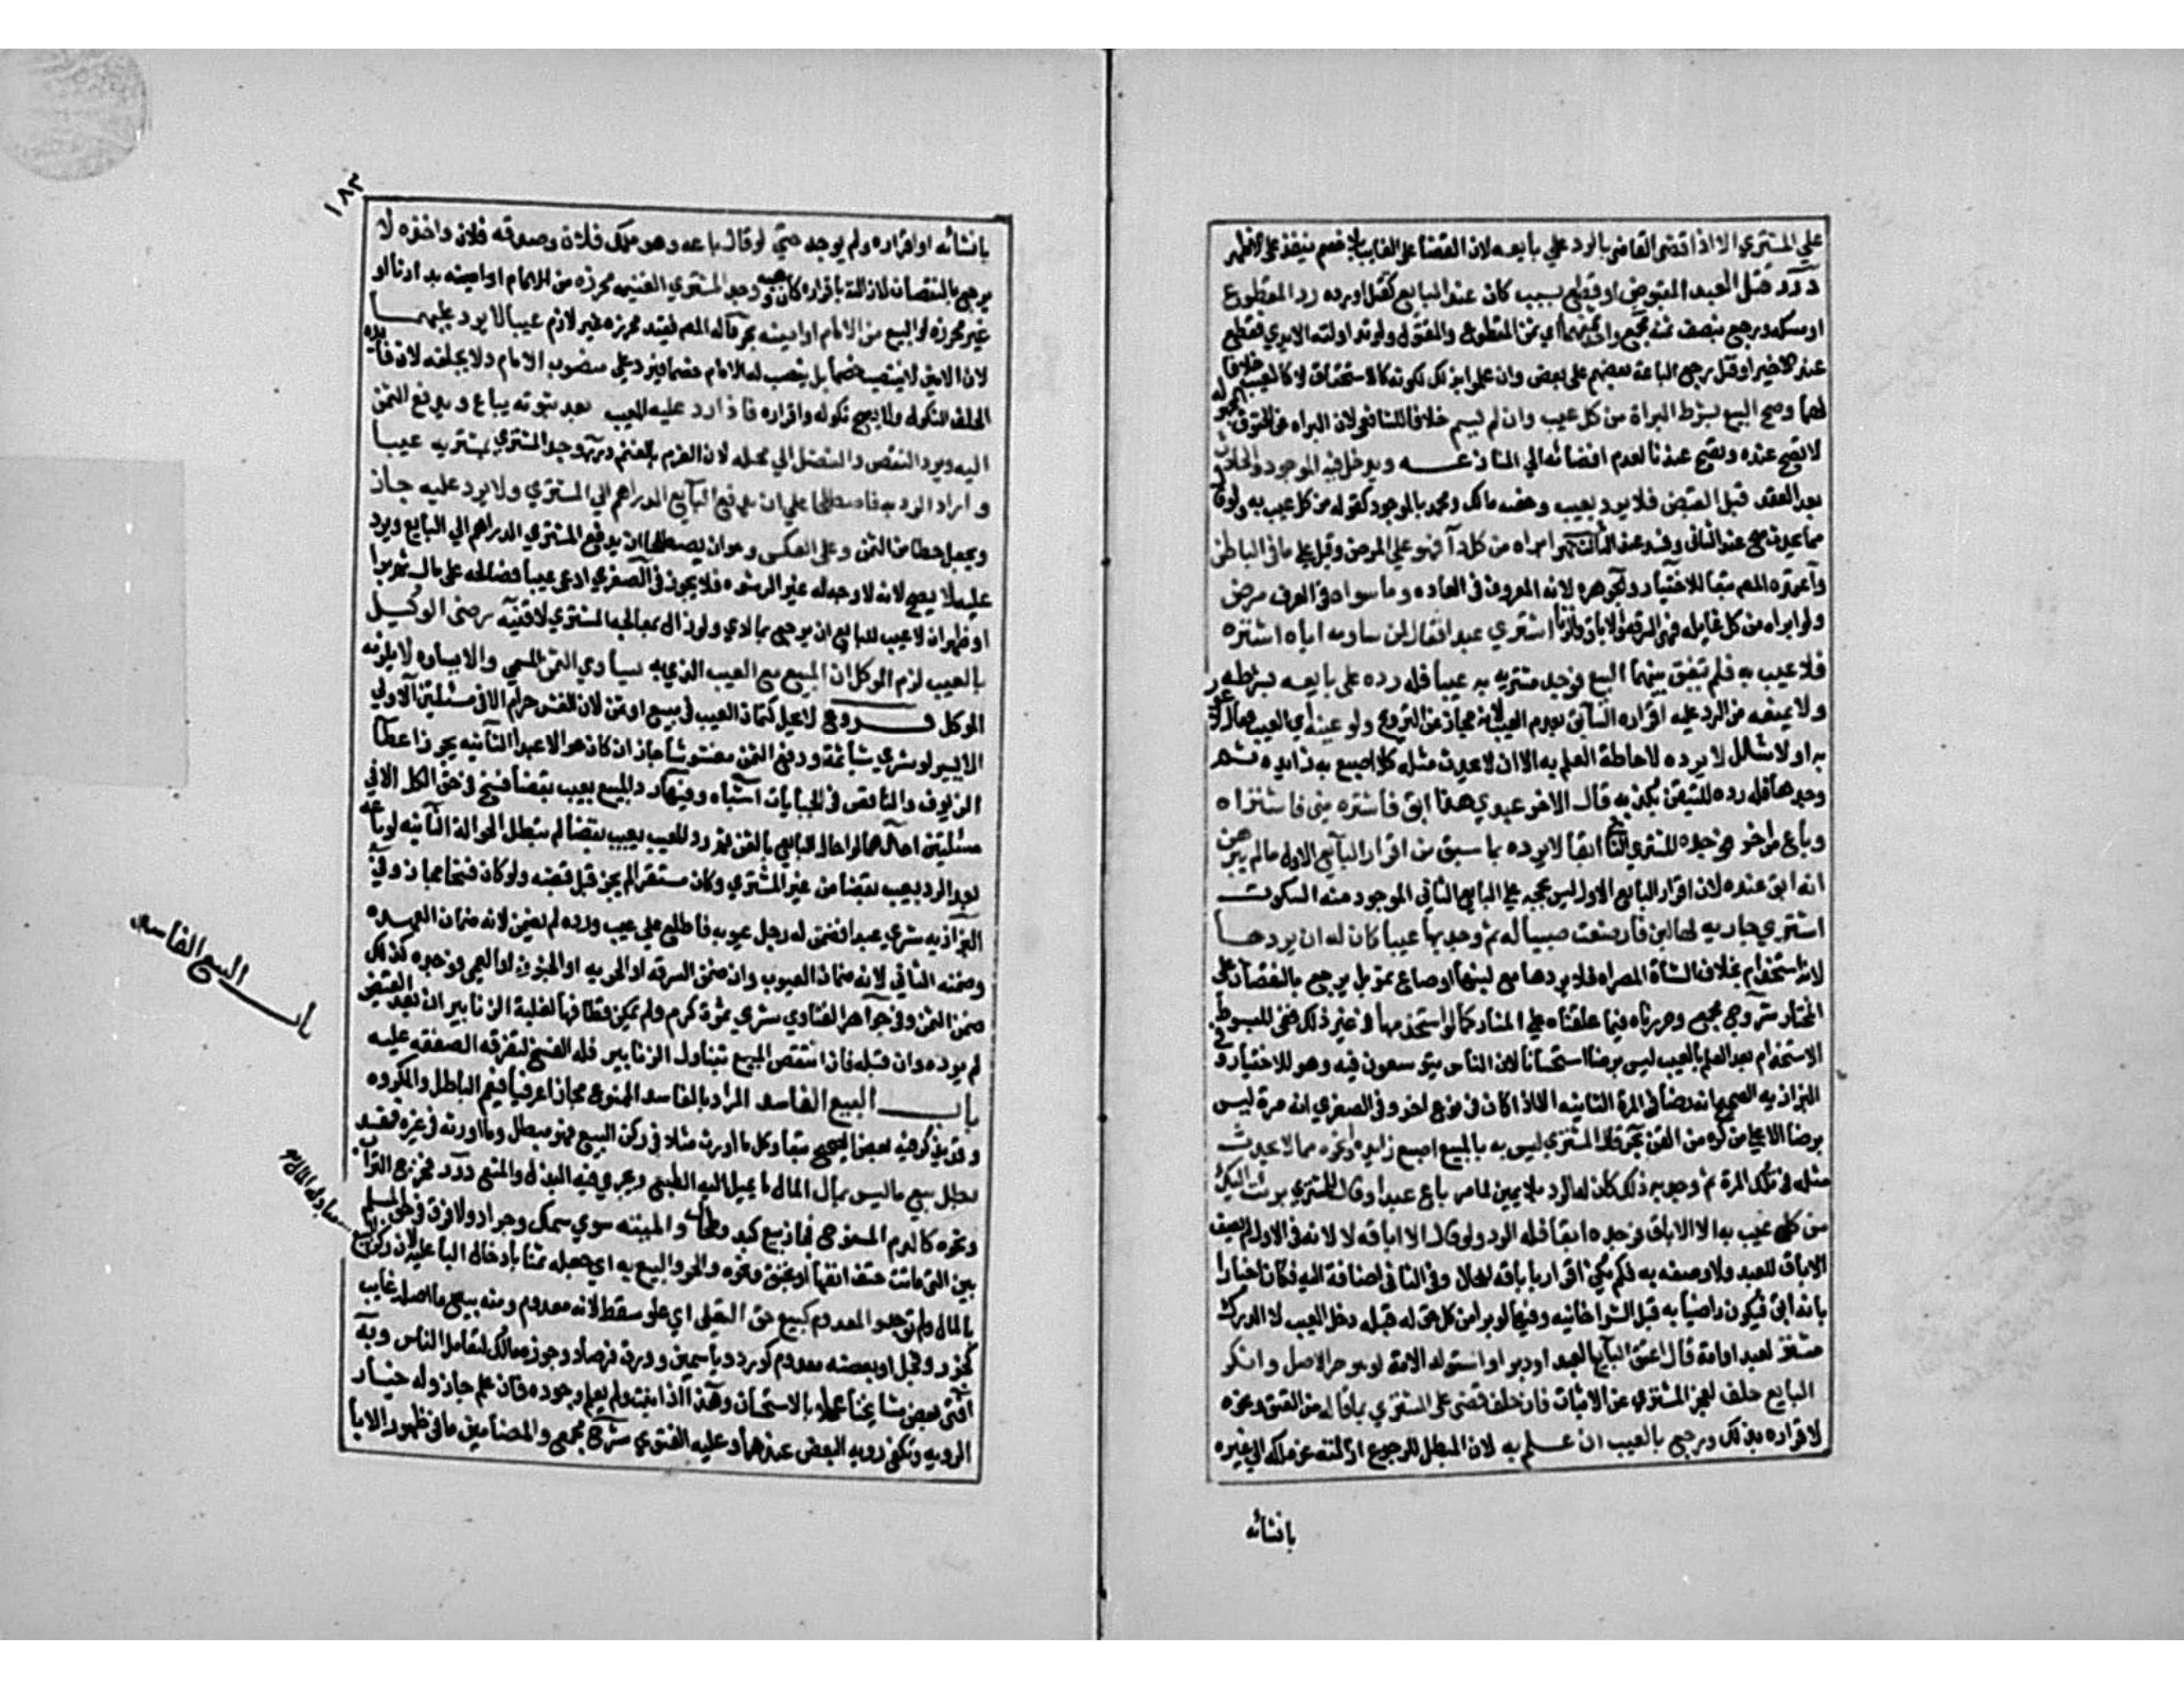 علي المشتري الا اذا قضى القاضي بالرد علي بايعه لان القضا على الغايب بلا خصم ينفذ على الاظهر
درر قتل العبد المقبوض او قطع بسبب كان عند البايع كقتل او رده رد المقطوع
او مسكه ورجع بنصف ثمنه مجمع واخذ ثمنهما اي ثمن المقطوع والمقتول ولو تداولته الايدي فقطع
عند الاخير او قتل رجع الباعة بعضهم على بعض وان علموا بذلك لكونه كالاستحقاق لا كالعيب خلافا
لهما وصح البيع بشرط البراة من كل عيب وان لم يسم خلافا للشافعي لان البراه عن الحقوق
لا تصح عنده وتصح عندنا لعدم افضائه الي المنازعه ويدخل فيه الموجود والحادث
بعد العقد قبل القبض فلا يرد بعيب وخصه مالك ومحمد بالموجود كقوله من كل عيب به ولو قال
مما يحدث صح عند الثاني وفسد عند الثالث نهر ابراه من كل دآ فهو علي المرض وقيل علي ما في الباطن
واعتمده المصم تبعا للاختيار والجوهره لانه المعروف في العاده وما سواه في العرف مرض
ولو ابراه من كل غايله فهي السرقه والاباق والزنا اشتري عبدا فقال لمن ساومه اياه اشتره
فلا عيب به فلم يتفق بينهما البيع فوجد مشتريه به عيبا فله رده على بايعه بشرطه
ولا يمنعه من الرد عليه اقراره السابق بعدم العيب لانه مجاز عن الترويج ولو عينه اي العيب فقال لا عور
به او لا شلل لا يرده لاحاطة العلم به الا ان لا يحدث مثله كلا اصبع به زايده ثم
وجدها فله رده للتيقن بكذبه قال لاخر عبدي هذا ابق فاشتره مني فاشتراه
وباع من اخر فوجده المشتري الثاني ابقا لا يرده بما سبق من اقرار البايع الاول ما لم يبرهن
انه ابق عنده لان اقرار البايع الاول ليس بحجه علي البايع الثاني الموجود منه السكوت
اشتري جاريه لها لبن فارضعت صبيا له ثم وجد بها عيبا كان له ان يردها
لانه استخدام بخلاف الشاة المصراه فلا يردها مع لبنها او صاع تمر بل يرجع بالنقصان على
المختار شروح مجمع وحررناه فيما علقناه علي المنار كما لو استخدمها في غير ذلك ففي المبسوط
الاستخدام بعد العلم بالعيب ليس برضا استحسانا لان الناس يتوسعون فيه وهو للاختيار وفي
البزازيه الصحيح انه رضا في المرة الثانيه الا اذا كان في نوع اخر وفي الصغري انه مرة ليس
برضا الا علي كره من القن بحر قال المشتري ليس به بالمبيع اصبع زايده او نحوه مما لا يحدث
مثله في تلك المرة ثم وجد به ذلك كان له الرد بلا يمين لما مر باع عبدا وقال للمشتري برئت اليك
من كل عيب به الا الاباق فوجده ابقا فله الرد ولو قال الا اباقه لا لانه في الاول لم يضف
الاباق للعبد ولا وصفه به فلم يكن اقرارا باباقه للحال وفي الثاني اضافه اليه فكان اخبارا
بانه ابق فيكون راضيا به قبل الشرا خانيه وفيها لو برا من كل حق له قبله دخل العيب لا الدرك
مشتر لعبد او امة قال اعتق البايع العبد او دبر او استولد الامة او هو حر الاصل وانكر
البايع حلف لعجز المشتري عن الاثبات فان حلف قضى على المشتري بما قاله من العتق ونحوه
لاقراره بذلك ورجع بالعيب ان علم به لان المبطل للرجوع ازالته عن ملكه الي غيره
بانشائه
١٨٣
بانشائه او اقراره ولم يوجد حتي لو قال باعه وهو ملك فلان وصدقه فلان واخذه لا
يرجع بالنقصان لازالته باقراره كانه وهبه وجد المشتري الغنيمه محرزه من الامام او امينه بدارنا او
غير محرزه لو البيع من الامام او امينه بحر قال المصم فقيد محرزه غير لازم عيبا لا يرد عليهما
لان الامين لا ينتصب خصما بل ينصب له الامام خصما فيرد علي منصوب الامام ولا يحلفه لان فائدة
الحلف النكول ولا يصح نكوله واقراره فاذا رد عليه المعيب بعد ثبوته يباع ويدفع الثمن
اليه ويرد النقص والفضل الي محله لان الغرم بالغنم درر وجد المشتري بمشتريه عيبا
واراد الرد به فاصطلحا علي ان يدفع البايع الدراهم الي المشتري ولا يرد عليه جاز
ويجعل حطا من الثمن وعلي العكس وهو ان يصطلحا ان يدفع المشتري الدراهم الي البايع ويرد
عليه لا يصح لانه لا وجه له غير الرشوه فلا يجوز وفي الصغري ادعى عيبا فصالحه على مال ثم برا
او ظهر ان لا عيب للبايع ان يرجع بما ادي ولو زال بمعالجة المشتري لا قنيه رضى الوكيل
بالعيب لزم الموكل ان المبيع مع العيب الذي به يساوي الثمن المسمي والا يساوه لا يلزمه
الموكل فروع لا يحل كتمان العيب في مبيع او ثمن لان الغش حرام الا في مسئلتين الاولي
الاسير لو شري شيا ثمة ودفع الثمن مغشوشا جاز ان كان حرا لا عبدا الثانيه يجوز اعطا
الزيوف والناقص في الجبايات اشباه وفيها رد المبيع بعيب بقضا فسخ في حق الكل الا في
مسئلتين احداهما لو احال البايع بالثمن ثم رد المبيع بعيب بقضا لم تبطل الحوالة الثانيه لو باعه
بعد الرد بعيب بقضا من غير المشتري وكان منقولا لم يجز قبل قبضه ولو كان فسخا لجاز وفي
البزازيه شري عبدا فضمن له رجل عيوبه فاطلع علي عيب ورده لم يضمن لانه ضمان العهده
وضمنه الثاني لانه ضمان العيوب وان ضمن السرقه او الحريه او الجنون او العمي فوجده كذلك
ضمن الثمن وفي جواهر الفتاوي شري ثمرة كرم ولم يمكن قطافها لغلبة الزنابير ان بعد القبض
لم يرده وان قبله فان انتقص المبيع بتناول الزنابير فله الفسخ لتفرق الصفقه عليه
باب البيع الفاسد المراد بالفاسد الممنوع مجازا عرفيا فيعم الباطل والمكروه
وقد يذكر فيه بعض الصحيح تبعا وكل ما اورث خللا في ركن البيع فهو مبطل وما اورثه في غيره مفسد
بطل بيع ما ليس بمال المال ما يميل اليه الطبع ويجري فيه البذل والمنع درر فخرج التراب
ونحوه كالدم المسفوح فجاز بيع كبد وطحال والميتة سوي سمك وجراد ولا فرق في حق المسلم
بين التي ماتت حتف انفها او بخنق ونحوه والحر والبيع به اي جعله ثمنا بادخال البا عليه لان ركن البيع
بالمال ولم توجد والمعدوم كبيع حق التعلي اي علو سقط لانه معدوم ومنه بيع ما اصله غايب
كجزر وفجل او بعضه معدوم كورد وياسمين وورق فرصاد وجوزه مالك لتعامل الناس وبه
افتى بعض مشايخنا عملا بالاستحسان وهذا اذا نبت ولم يعلم وجوده فان علم جاز وله خيار
الرويه وتكفي رويه البعض عندهما وعليه الفتوي شرح مجمع والمضامين ما في ظهور الابا
باب البيع الفاسد
مبادلة المال